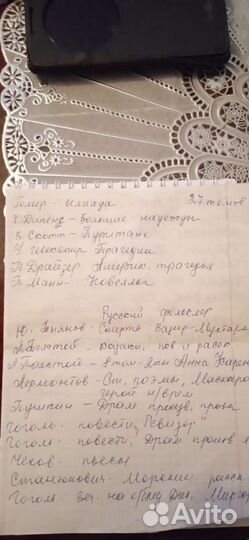 Гомер - Илиада 27 томов
Ч Диккенс - Большие надежды
В. Скотт - Пуритане
У Шекспир Трагедии
Т. Драйзер Америк. трагедия
Т. Манн - Новеллы
Русский фольклор
Ю. Тынянов - Смерть Вазир-Мухтара
А Толстой - Казаки, пов и расск
Л Толстой - 8 том - Анна Карен
Лермонтов - Сти, поэмы, Маскарад
герой н/врем
Пушкин - Драм. произв, проза
Гоголь - повести, "Ревизор"
Гоголь - повести, Драм произв
Чехов - пьесы
Станюкович - Морские расск
Гоголь - веч. на х Бл Дик, Мирг
Avito